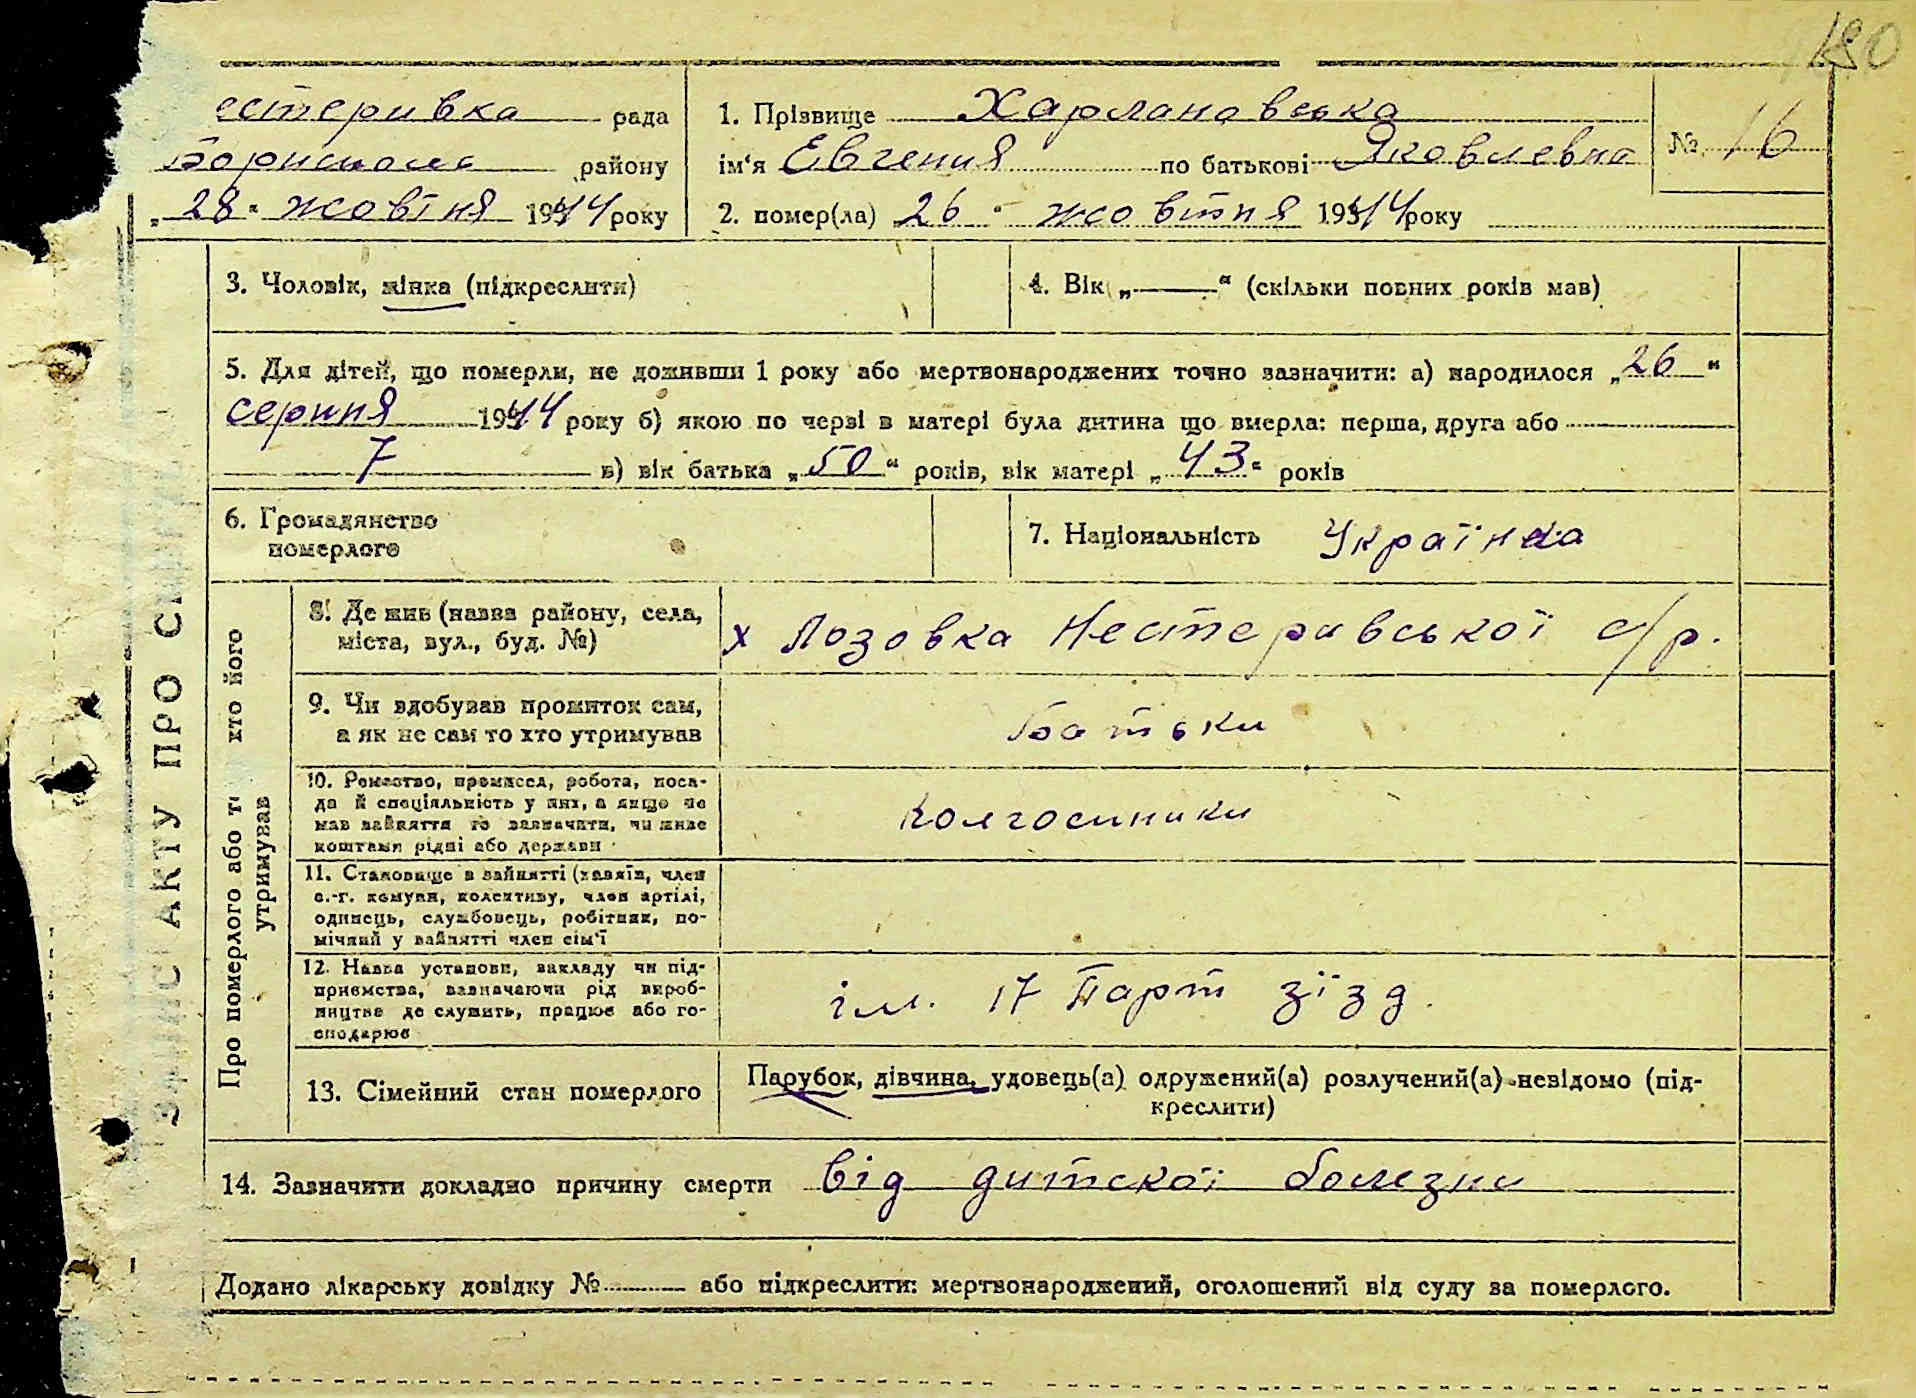 180
естеривка рада
району
„28“ жовтня 1944 року
1. Прізвище Харлановська
ім'я Евгения по батькові Яковлевна
№ 16
2. помер(ла) 26 “ жовтня 1944 року
3. Чоловік, жінка (підкреслити)
4. Вік „———“ (скільки повних років мав)
5. Для дітей, що померли, не доживши 1 року або мертвонароджених точно зазначити: а) народилося „26“
серпня 1944 року б) якою по черзі в матері була дитина що вмерла: перша, друга або
7 в) вік батька „50“ років, вік матері „43“ років
6. Громадянство
померлого
7. Національність Українка
ЗАПИС АКТУ ПРО С
Про померлого або т кто його
утримував
8. Де жив (назва району, села,
міста, вул., буд. №)
х Лозовка Нестеривської с/р.
9. Чи здобував прожиток сам,
а як не сам то хто утримував
Батьки
10. Ремество, промисел, робота, поса-
да й спеціяльність у них, а якщо не
мав зайняття то зазначити, чи живе
коштами рідні або держави
Колгоспники
11. Становище в зайнятті (хазяїн, член
с.-г. комуни, колективу, член артілі,
одинець, службовець, робітник, по-
мічний у зайнятті член сім'ї
12. Назва установи, закладу чи під-
приємства, зазначаючи рід вироб-
ництва де служить, працює або го-
сподарює
ім. 17 Парт зїзд.
13. Сімейний стан померлого
Парубок, дівчина, удовець(а) одружений(а) розлучений(а) невідомо (під-
креслити)
14. Зазначити докладно причину смерти від дитской болезни
Додано лікарську довідку № або підкреслити: мертвонароджений, оголошений від суду за померлого.